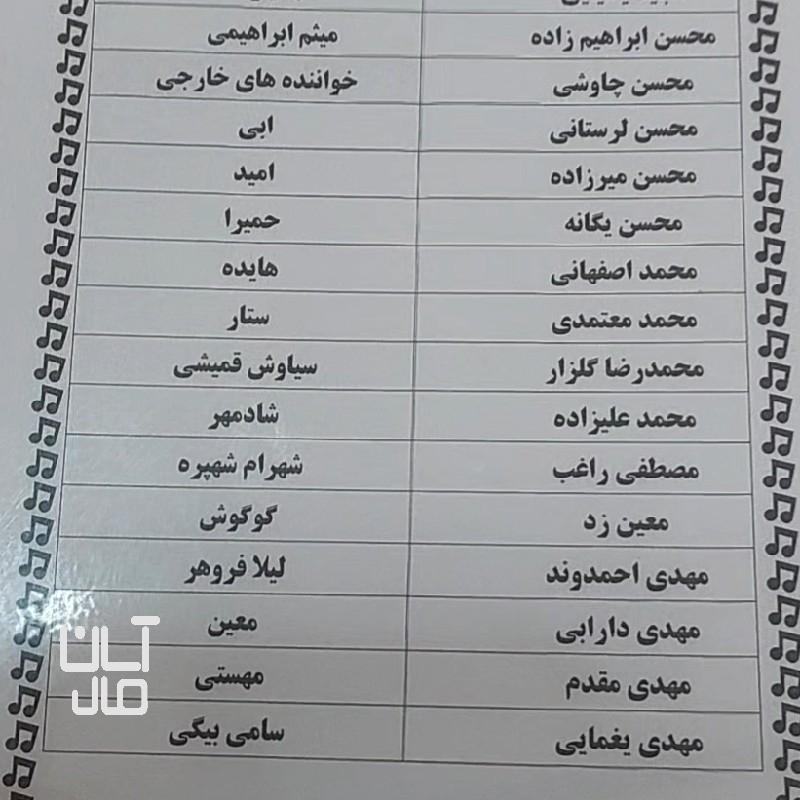 محسن ابراهیم زاده	میثم ابراهیمی
محسن چاوشی	خواننده های خارجی
محسن لرستانی	ابی
محسن میرزاده	امید
محسن یگانه	حمیرا
محمد اصفهانی	هایده
محمد معتمدی	ستار
محمدرضا گلزار	سیاوش قمیشی
محمد علیزاده	شادمهر
مصطفی راغب	شهرام شهپره
معین زد	گوگوش
مهدی احمدوند	لیلا فروهر
مهدی دارابی	معین
مهدی مقدم	مهستی
مهدی یغمایی	سامی بیگی
آسان
مال